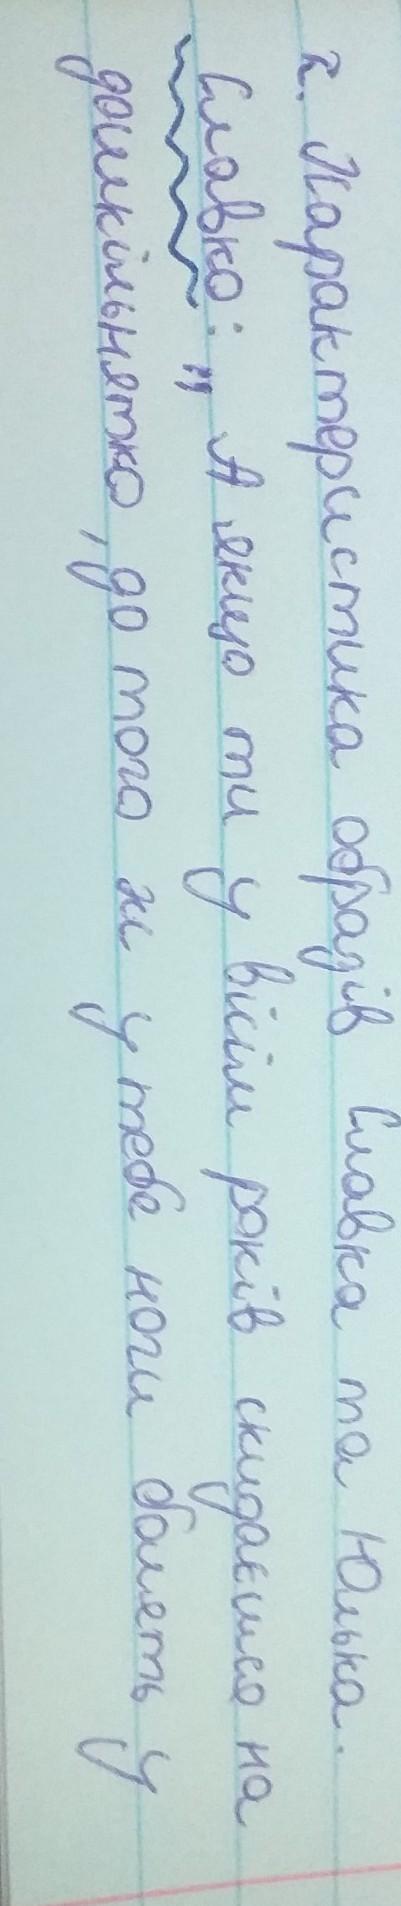 2. Характеристика образів Славка та Юлька.
Славко: „А якщо ти у вісім років скидаєшся на
дошкільнятко, до того ж у тебе ноги болять у